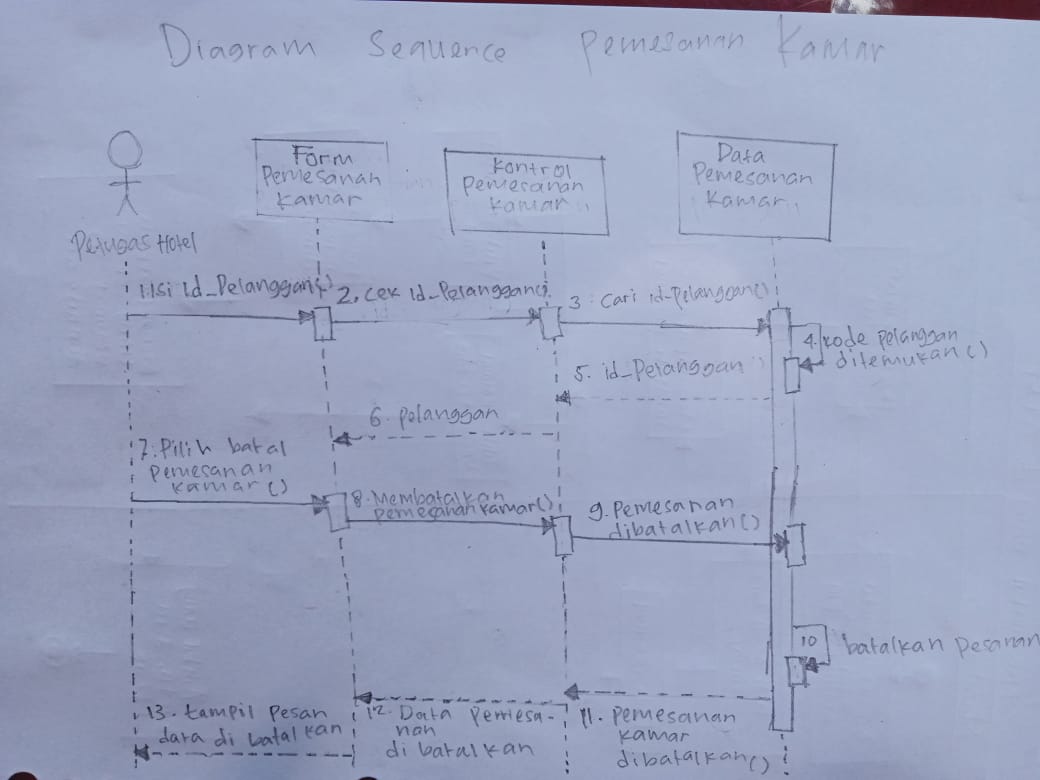 Diagram Sequence Pemesanan Kamar
Form
Pemesanan
Kamar
Kontrol
Pemesanan
Kamar
Data
Pemesanan
Kamar
Petugas Hotel
1.Isi id_Pelanggan()
2. cek id_Pelanggan()
3. Cari id_Pelanggan()
4. kode pelanggan
ditemukan()
5. id_Pelanggan
6. pelanggan
7. Pilih batal
pemesanan
kamar()
8. Membatalkan
pemesanan kamar()
9. Pemesanan
dibatalkan()
10 batalkan pesanan
11. Pemesanan
kamar
dibatalkan()
12. Data pemesa-
nan
di batalkan
13. tampil pesan
data di batalkan